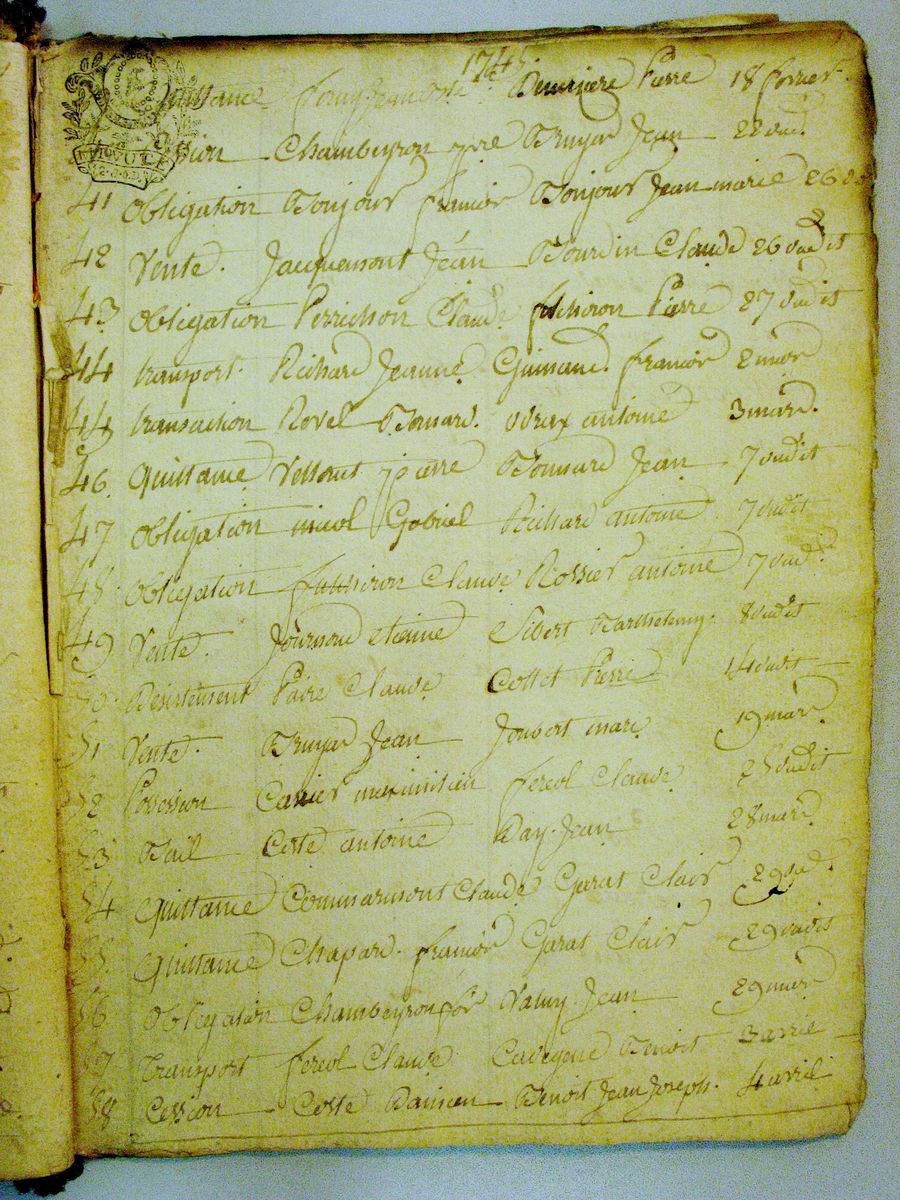 1745
Quittance Jean Pierre 18 fevrier
Cession Chambeyron pre Bruyas Jean 22 dud.
41 Obligation Bonjour francois Bonjour Jean marie 26
42 Vente. Jacquemont Jean Bourdin Claude 26 dudit
43 Obligation Perrichon Claude fulchiron Pierre 27 dudit
44 transport. Richard Jeanne Guinand francois 2 mars
45 transaction Rovel Bonard. antoine 3 mars.
46. Quittance jpierre Bonnard Jean 7 dudit
47 Obligation nicol Gabriel Richard antoine 7 dudit
48. Obligation fulchiron Claude Rossier antoine 7 dud.
49 Vente. Journoud etienne Sibert Barthelemy. 8 dudit
50. Desistement Paire Claude Collet Pierre 14 dudit
51 Vente. Bruyas Jean Joubert marc 19 mars
52 Possession Carrier maximilien fereol Claude 25 dudit
53 Bail Coste antoine Bay. Jean 28 mars
54 Quittance Commarmont Claude Garat Clair 29 dud.
55. Quittance Chapard. francois Garat Clair 29 dudit
56 Obligation Chambeyron fois Jean 29 mars
57 Transport fereol Claude Benoit 3 avril
58 Cession Coste Damien Benoit Jean Joseph. 4 avril